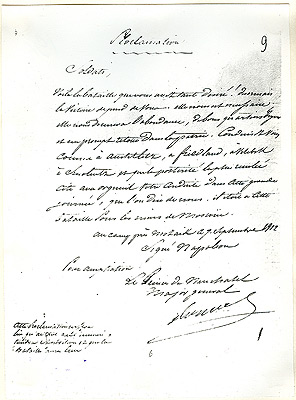 Proclamation
9
Soldats,
Voilà la bataille que vous avez tant désiré! désormais
la victoire dépend de vous: elle nous est nécessaire
elle nous donnera l'abondance, de bons quartiers d'hiver
et un prompt retour dans la patrie. Conduisez Vous
comme à Austerlitz, à friedland, à Vitebsk
à Smolensk et que la postérité la plus reculée
cite avec orgueil votre conduite dans cette grande
journée, que l'on dise de vous. il étoit à cette
bataille sous les murs de Moscou.
au camp près Mojaisk le 7 Septembre 1812
Signé Napoleon
Pour ampliation
Le Prince de Neuchatel
Major général
Cette Proclamation
bataille